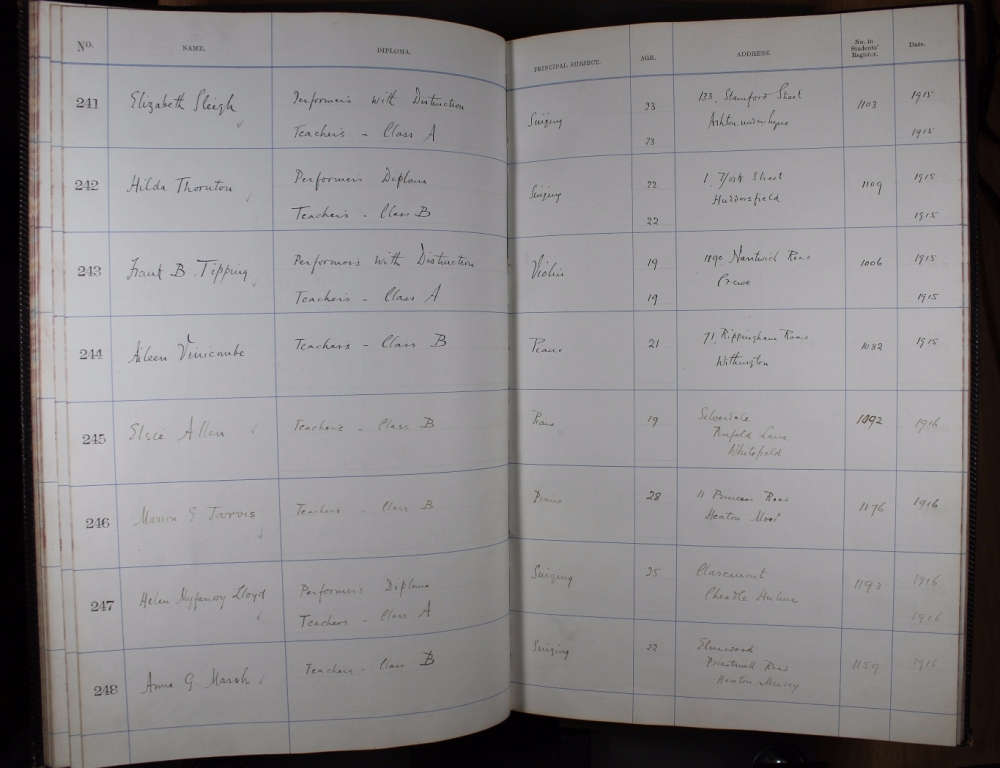 No. NAME. DIPLOMA. PRINCIPAL SUBJECT. AGE. ADDRESS. No. in Students' Register. Date.
241 Elizabeth Sleigh Performers with Distinction Singing 23 133, Stamford Street 1103 1915
Teachers - Class A 23 Ashton-under-Lyne 1915
242 Hilda Thornton Performers Diploma Singing 22 1, York Street 1109 1915
Teachers - Class B 22 Huddersfield 1915
243 Frank B. Tipping Performers with Distinction Violin 19 Nantwich Road 1006 1915
Teachers - Class A 19 Crewe 1915
244 Aileen Vinicombe Teachers - Class B Piano 21 71, Rippingham Road 1032 1915
Withington
245 Elsie Allen Teachers - Class B Piano 19 Silverdale 1092 1916
Pinfold Lane
Whitefield
246 Marion E Jarvis Teachers - Class B Piano 28 11 Princes Road 1176 1916
Heaton Moor
247 Helen Myfanwy Lloyd Performers Diploma Singing 25 Claremont 1193 1916
Teachers - Class A Cheadle Hulme 1916
248 Annie G. Marsh Teachers - Class B Singing 22 Elmwood 1159 1916
Priestnall Road
Heaton Mersey